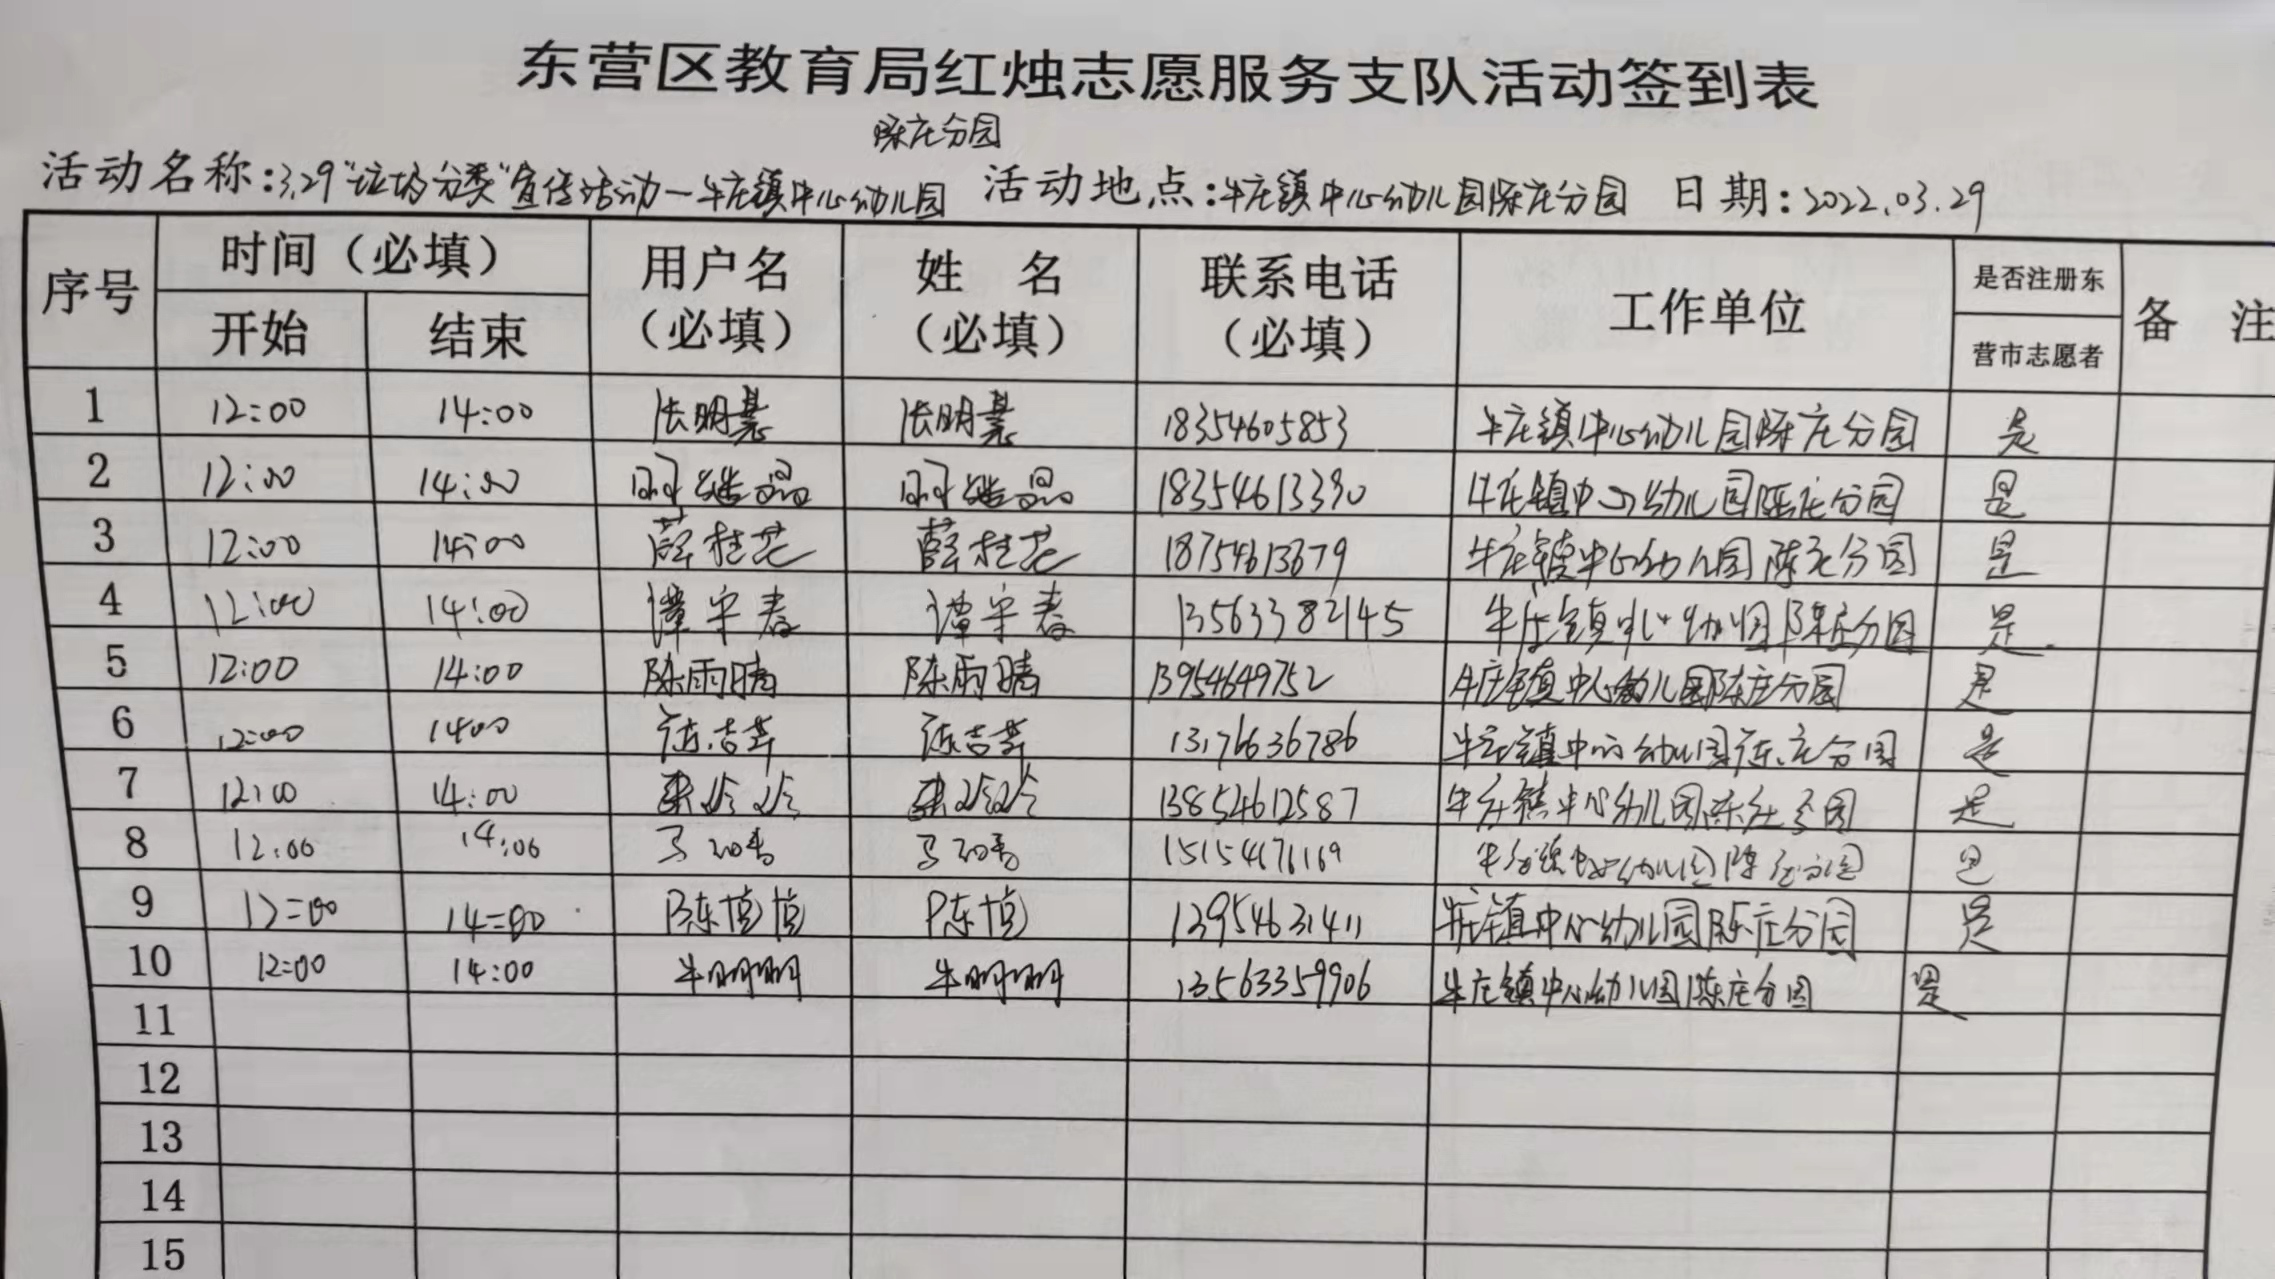 东营区教育局红烛志愿服务支队活动签到表
陈庄分园
活动名称:3.29“垃圾分类”宣传活动—牛庄镇中心幼儿园 活动地点:牛庄镇中心幼儿园陈庄分园 日期:2022.03.29
序号 时间（必填） 用户名（必填） 姓 名（必填） 联系电话（必填） 工作单位 是否注册东营市志愿者 备 注
开始 结束
1 12:00 14:00 张明慧 张明慧 18354605853 牛庄镇中心幼儿园陈庄分园 是
2 12:00 14:00 18354613390 牛庄镇中心幼儿园陈庄分园 是
3 12:00 14:00 薛桂花 薛桂花 18754613679 牛庄镇中心幼儿园陈庄分园 是
4 12:00 14:00 谭宇春 谭宇春 13563382145 牛庄镇中心幼儿园陈庄分园 是
5 12:00 14:00 陈雨晴 陈雨晴 13954649752 牛庄镇中心幼儿园陈庄分园 是
6 12:00 14:00 陈吉苹 陈吉苹 13176636786 牛庄镇中心幼儿园陈庄分园 是
7 12:00 14:00 13854612587 牛庄镇中心幼儿园陈庄分园 是
8 12:00 14:00 15154676169 牛庄镇中心幼儿园陈庄分园 是
9 12:00 14:00 陈愼愼 陈愼 13954631411 牛庄镇中心幼儿园陈庄分园 是
10 12:00 14:00 牛明明 牛明明 13563359906 牛庄镇中心幼儿园陈庄分园 是
11
12
13
14
15